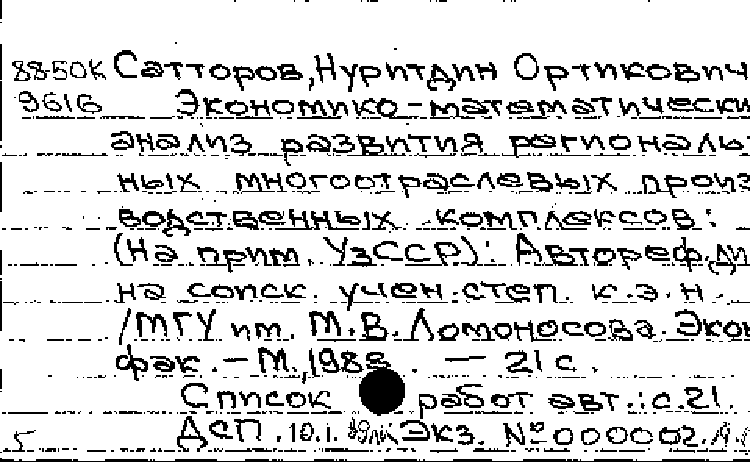 8850К Сатторов, Нуритдин Ортикович
9616 Экономико-математически
анализ развития региональ
ных многоотраслевых произ
водственных комплексов:
(На прим. УзССР): Автореф. ди
на соиск. учен. степ. к.э.н.
/МГУ им. М.В. Ломоносова. Экон
фак. — М., 1988. — 21 с.
Список работ авт.: с.21.
5 ДСП. 10.1. Экз. №000002.